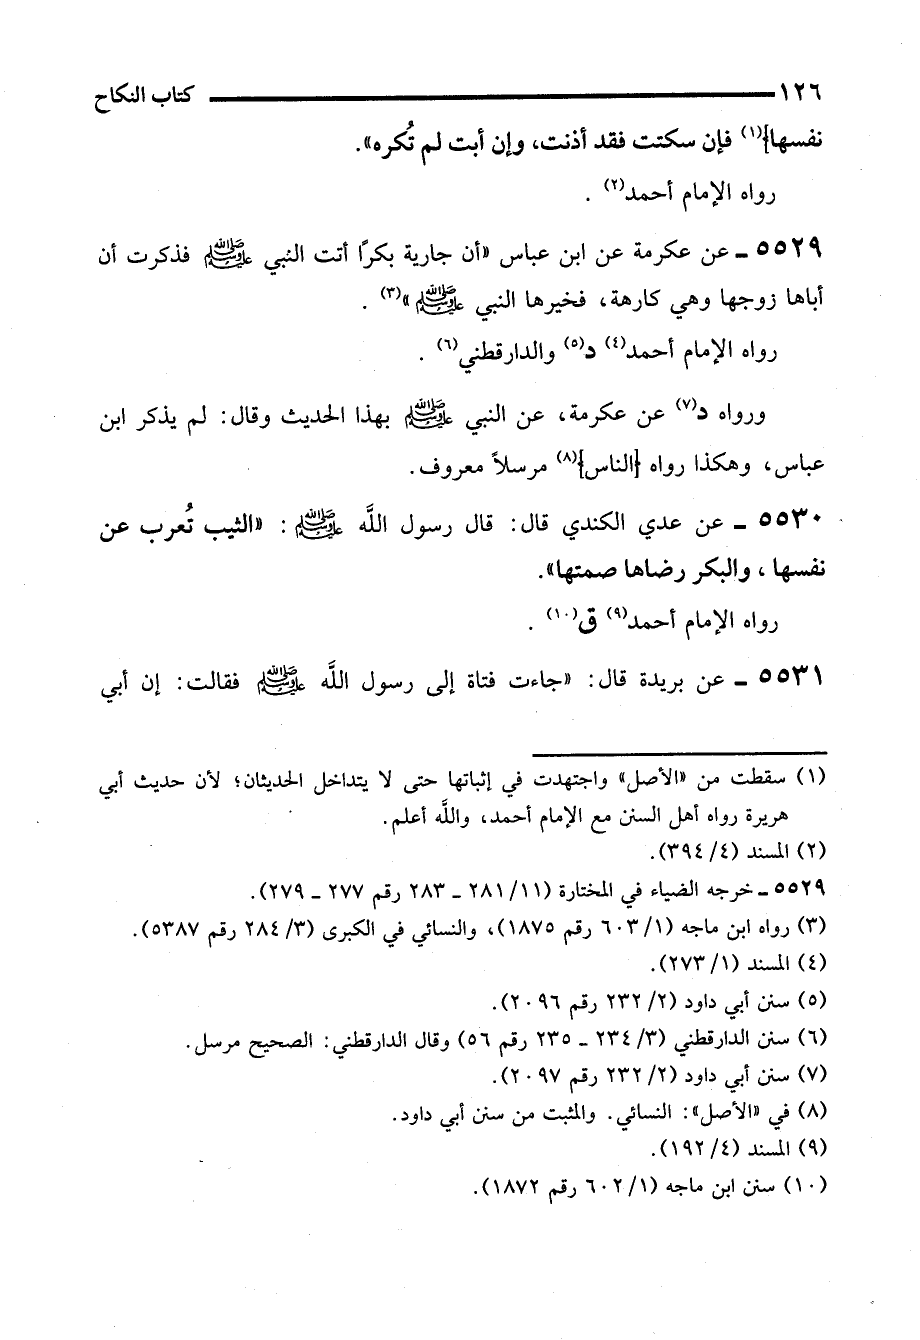 ١٢٦ كتاب النكاح
نفسها}(١) فإن سكتت فقد أذنت، وإن أبت لم تُكره».
رواه الإمام أحمد(٢) .
٥٥٢٩ ـ عن عكرمة عن ابن عباس «أن جارية بكرًا أتت النبي ﷺ فذكرت أن
أباها زوجها وهي كارهة، فخيرها النبي ﷺ»(٣) .
رواه الإمام أحمد(٤) د(٥) والدارقطني(٦) .
ورواه د(٧) عن عكرمة، عن النبي ﷺ بهذا الحديث وقال: لم يذكر ابن
عباس، وهكذا رواه {الناس}(٨) مرسلاً معروف.
٥٥٣٠ ـ عن عدي الكندي قال: قال رسول اللَّه ﷺ: «الثيب تُعرب عن
نفسها، والبكر رضاها صمتها».
رواه الإمام أحمد(٩) ق(١٠) .
٥٥٣١ ـ عن بريدة قال: «جاءت فتاة إلى رسول اللَّه ﷺ فقالت: إن أبي
(١) سقطت من «الأصل» واجتهدت في إثباتها حتى لا يتداخل الحديثان؛ لأن حديث أبي
هريرة رواه أهل السنن مع الإمام أحمد، واللَّه أعلم.
(٢) المسند (٤/ ٣٩٤).
٥٥٢٩ ـ خرجه الضياء في المختارة (١١/ ٢٨١ ـ ٢٨٣ رقم ٢٧٧ ـ ٢٧٩).
(٣) رواه ابن ماجه (١/ ٦٠٣ رقم ١٨٧٥)، والنسائي في الكبرى (٣/ ٢٨٤ رقم ٥٣٨٧).
(٤) المسند (١/ ٢٧٣).
(٥) سنن أبي داود (٢/ ٢٣٢ رقم ٢٠٩٦).
(٦) سنن الدارقطني (٣/ ٢٣٤ ـ ٢٣٥ رقم ٥٦) وقال الدارقطني: الصحيح مرسل.
(٧) سنن أبي داود (٢/ ٢٣٢ رقم ٢٠٩٧).
(٨) في «الأصل»: النسائي. والمثبت من سنن أبي داود.
(٩) المسند (٤/ ١٩٢).
(١٠) سنن ابن ماجه (١/ ٦٠٢ رقم ١٨٧٢).